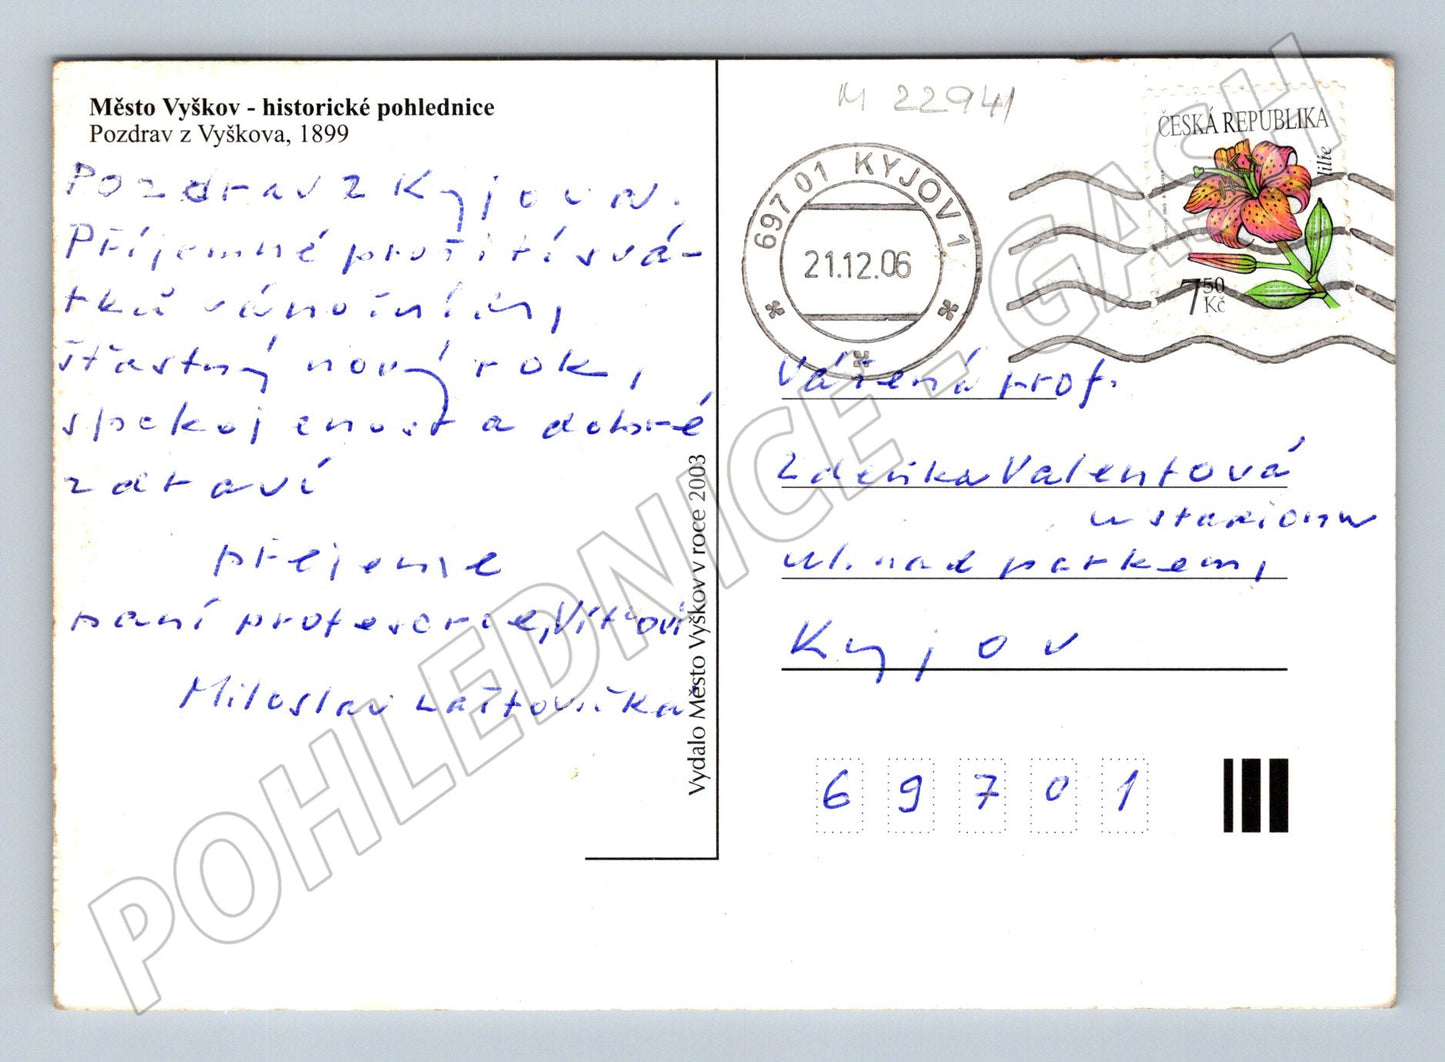 Město Vyškov - historické pohlednice
Pozdrav z Vyškova, 1899
Pozdrav z Kyjova.
Příjemné prožití svá-
tků vánočních,
šťastný nový rok,
spokojenost a dobré
zdraví
přejeme
paní profesorce, Víťovi
Miloslav Laštovička
Vydalo Město Vyškov v roce 2003
M 22941
697 01 KYJOV 1
21.12.06
ČESKÁ REPUBLIKA
lilie
7 50 Kč
Vážená prof.
Zdeňka Valentová
u stadionu
ul. nad parkem,
Kyjov
6 9 7 0 1
POHLEDNICE - GASH